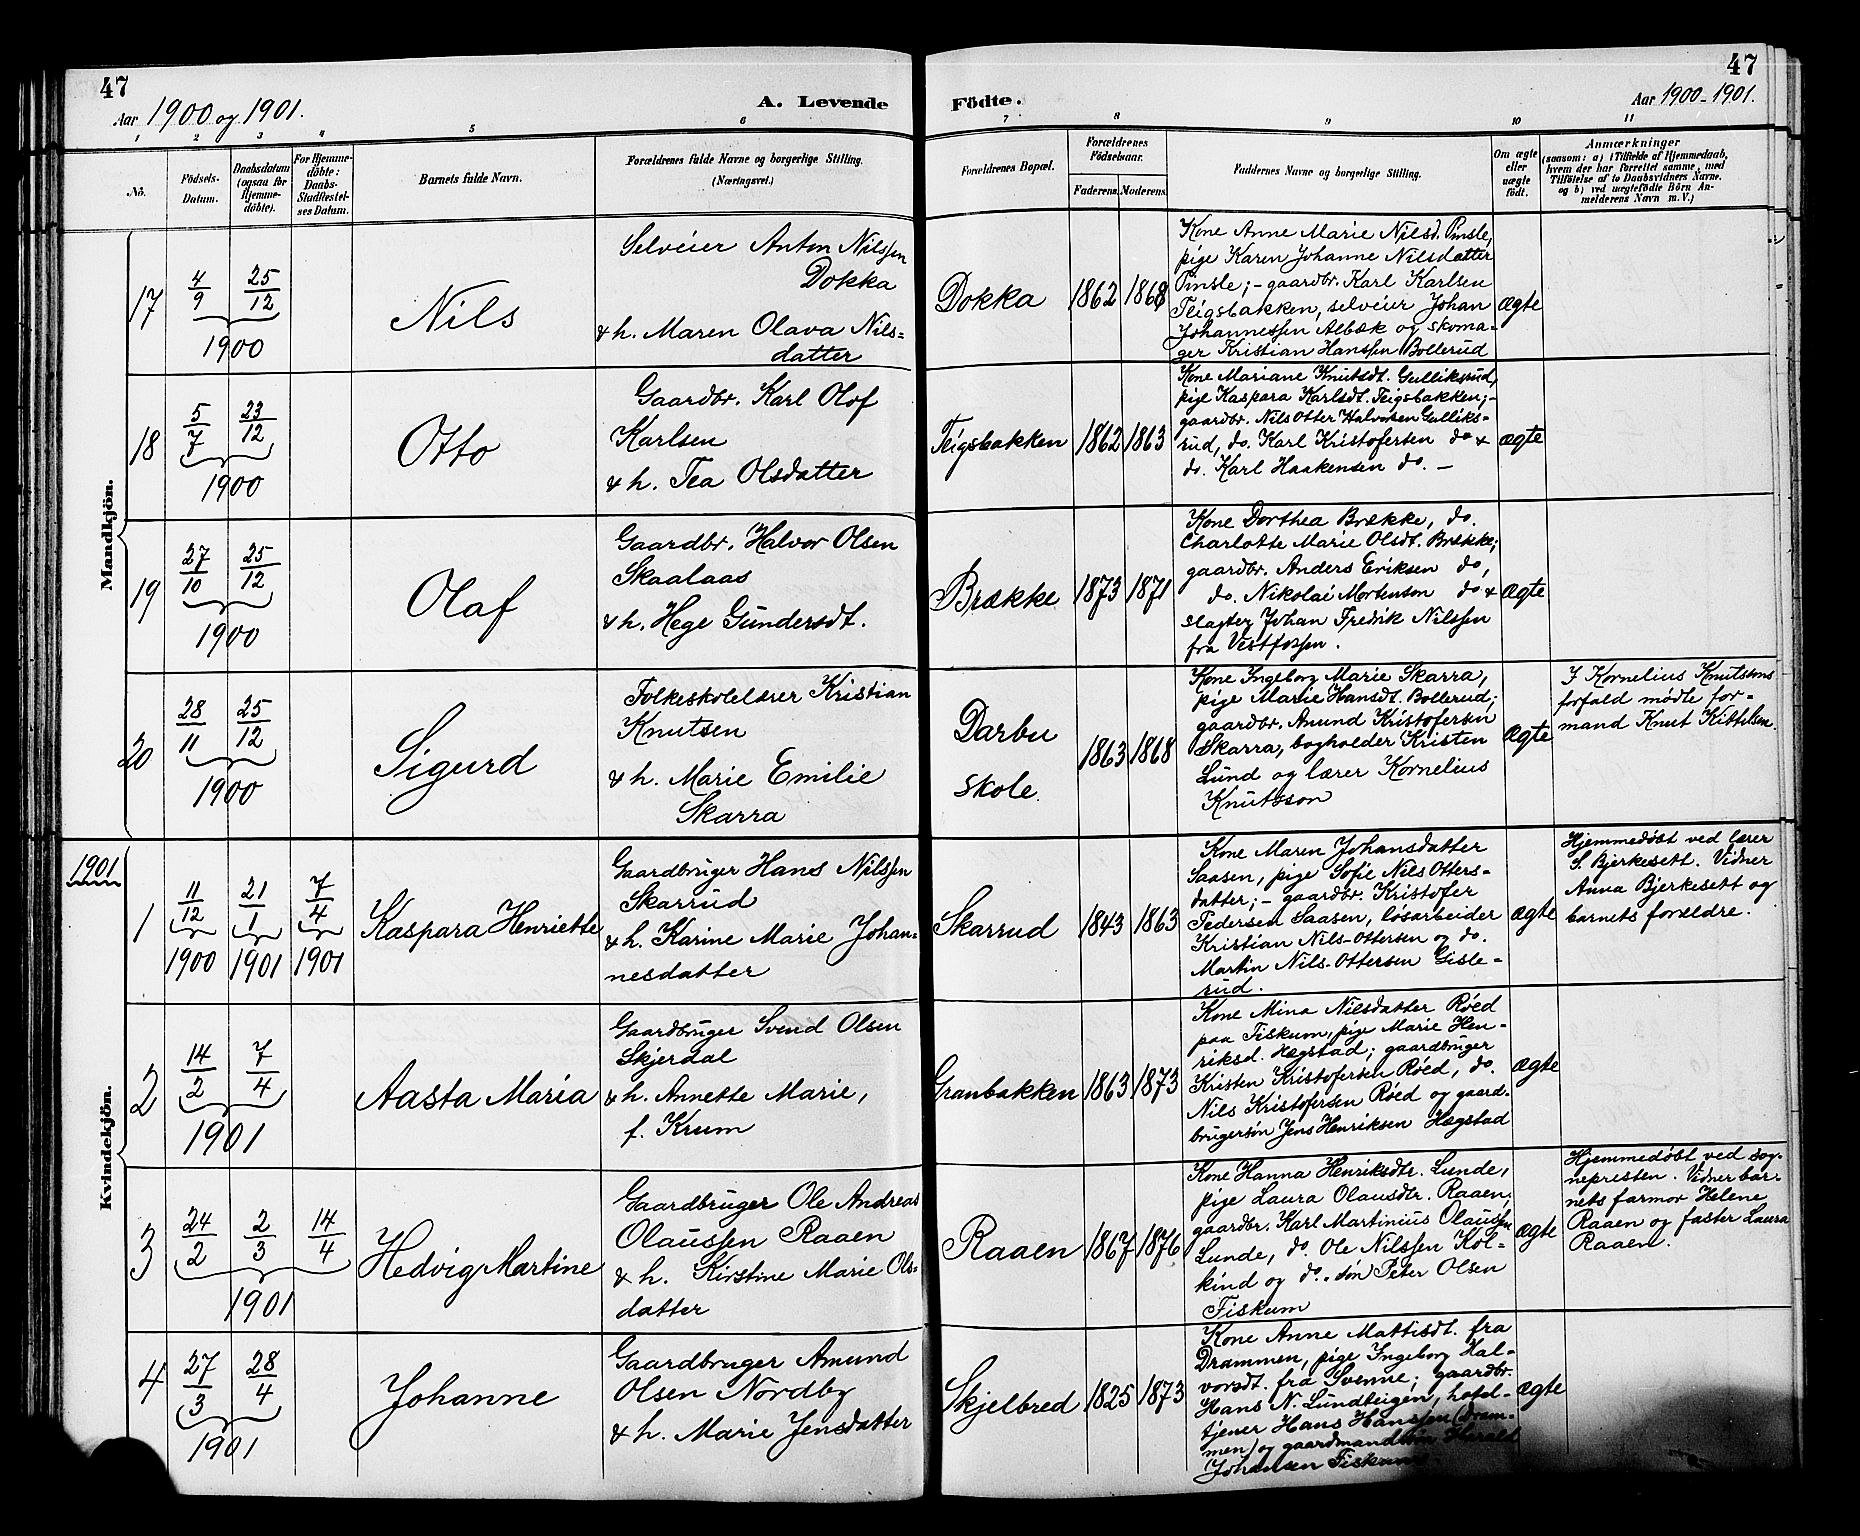 47
Aar 1900 og 1901.
A. Levende
Födte.
47
Aar 1900-1901.
1 2 3 4 5 6 7 8 9 10 11
No.
Födsels-
Datum.
Daabsdatum
(ogsaa for
Hjemme-
döbte).
For Hjemme-
döbte:
Daabs-
Stadfæstel-
ses Datum.
Barnets fulde Navn.
Forældrenes fulde Navne og borgerlige Stilling.
(Næringsvei.)
Forældrenes Bopæl.
Forældrenes
Födselsaar.
Faderens.
Moderens.
Faddernes Navne og borgerlige Stilling.
Om ægte
eller
uægte
födt.
Anmærkninger
(saasom: a) i Tilfælde af Hjemmedaab,
hvem der har forrettet samme, med
Tilföielse af to Daabsvidners Navne,
og b) ved uægtefödte Börn An-
melderens Navn m. V.)
Mandkjön.
17
4/9 25/12
1900
Nils
Selveier Anton Nilssen
Dokka
& h. Maren Olava Nils=
datter
Dokka
1862 1868
Kone Anne Marie Nilsd. Pinsle,
pige Karen Johanne Nilsdatter
Pinsle; - gaardbr. Karl Karlsen
Teigsbakken, selveier Johan
Johannessen Albæk og skoma-
ger Kristian Hanssen Bollerud
ægte
18
5/7 23/12
1900
Otto
Gaardbr. Karl Olof
Karlsen
& h. Tea Olsdatter
Teigsbakken
1862 1863
Kone Mariane Knutsdt. Gulliksrud,
pige Kaspara Karlsdt. Teigsbakken; -
gaardbr. Nils Otter Halvorsen Gulliks-
rud, do. Karl Kristofersen do &
do. Karl Haakensen do. -
ægte
19
27/10 25/12
1900
Olaf
Gaardbr. Halvor Olsen
Skaalaas
& h. Hege Gundersdt.
Brække
1873 1871
Kone Dorthea Brække, do.
Charlotte Marie Olsdt. Brække;
gaardbr. Anders Eriksen do,
do. Nikolai Mortenson do &
slagter Johan Fredrik Nilssen
fra Vestfossen.
ægte
20
28/11 25/12
1900
Sigurd
Folkeskolelærer Kristian
Knutsen
& h. Marie Emilie
Skarra
Darbu
skole.
1863 1868
Kone Ingeborg Marie Skarra,
pige Marie Hansdt. Bollerud;
gaardbr. Amund Kristofersen
Skarra, bogholder Kristen
Lund og lærer Kornelius
Knutsson
ægte
I Kornelius Knutssons
forfald mødte for-
mand Knut Kittilsen.
1901
Kvindekjön.
1
11/12 21/1 7/4
1900 1901 1901
Kaspara Henriette
Gaardbruger Hans Nilssen
Skarrud
& h. Karine Marie Johan=
nesdatter
Skarrud
1843 1863
Kone Maren Johansdatter
Saasen, pige Sofie Nils Otters-
datter; - gaardbr. Kristofer
Pedersen Saasen, løsarbeider
Kristian Nils-Ottersen og do.
Martin Nils-Ottersen Gisle-
rud.
ægte
Hjemmedøbt ved lærer
S. Bjerkesett. Vidner
Anna Bjerkesett og
barnets forældre.
2
14/2 7/4
1901
Aasta Maria
Gaardbruger Svend Olsen
Skjerdal
& h. Annette Marie,
f. Krum
Granbakken
1863 1873
Kone Mina Nilsdatter Røed
paa Fiskum, pige Marie Hen-
riksd. Hægstad; gaardbruger
Kristen Kristofersen Røed, do.
Nils Kristofersen Røed og gaard-
brugersøn Jens Henriksen Hægstad
ægte
3
24/2 2/3 14/4
1901
Hedvig Martine
Gaardbruger Ole Andreas
Olaussen Raaen
& h. Kirstine Marie Ols-
datter
Raaen
1867 1876
Kone Hanna Henriksdtr. Lunde,
pige Laura Olausdtr. Raaen;
gaardbr. Karl Martinius Olaussen
Lunde, do. Ole Nilssen Kol-
kind og do. søn Peter Olsen
Fiskum
ægte
Hjemmedøbt ved sog-
nepresten. Vidner bar-
nets farmor Helene
Raaen og faster Laura
Raaen.
4
27/3 28/4
1901
Johanne
Gaardbruger Amund
Olsen Nordby
& h. Marie Jensdatter
Skjelbred
1825 1873
Kone Anne Mattisdt. fra
Drammen, pige Ingeborg Hal-
vorsdt. fra Svenne; gaardbr.
Hans N. Lundteigen, hotel-
tjener Hans Hanssen (Dram-
men) og gaardmandssøn Harald
Johansen Fiskum
ægte